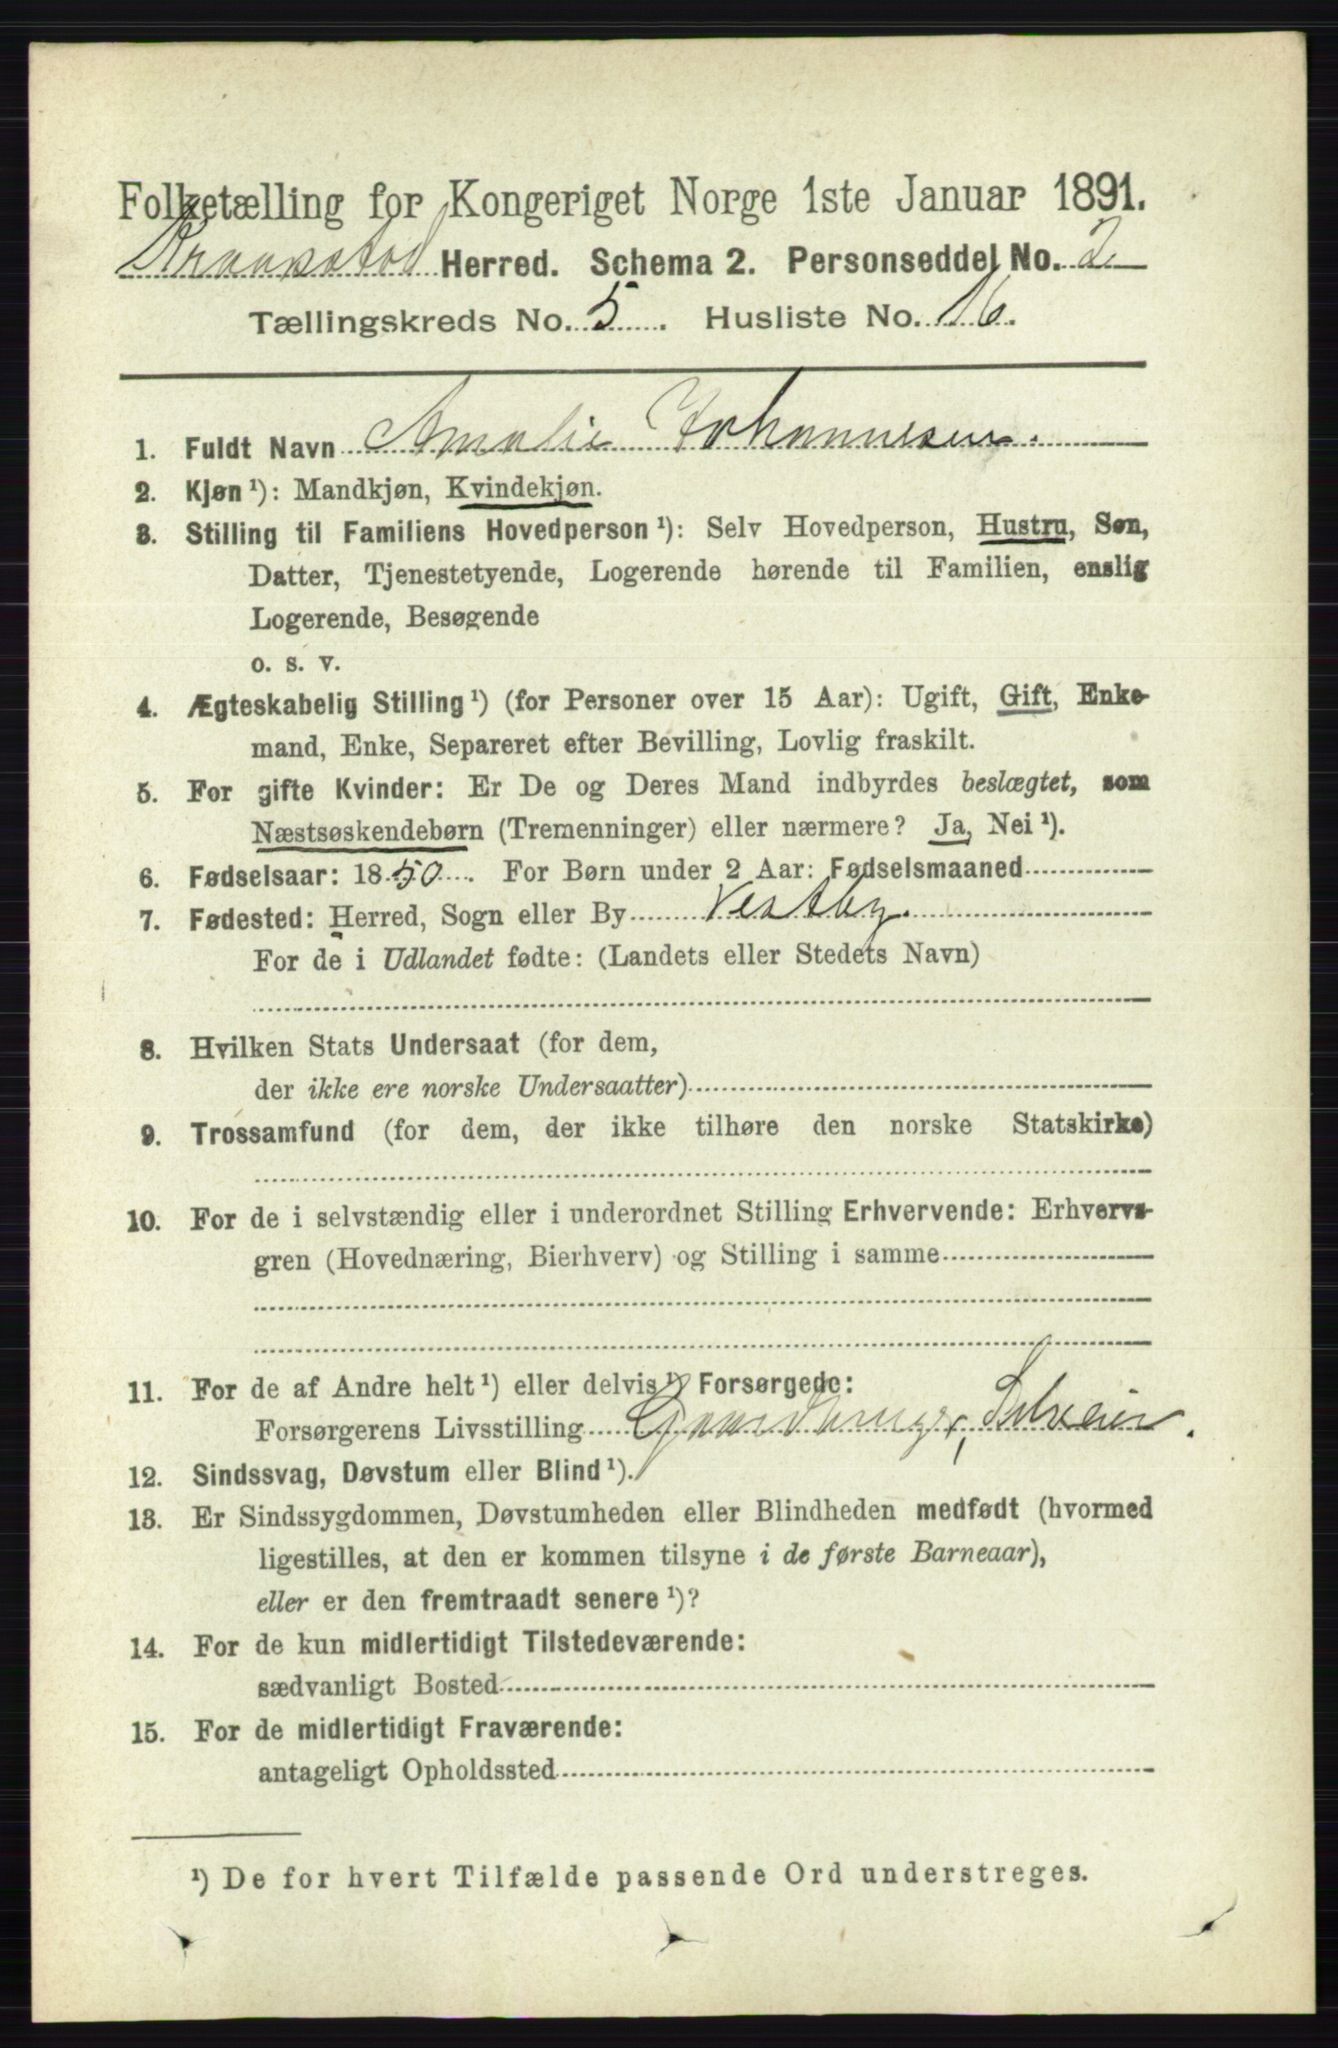 Folketælling for Kongeriget Norge 1ste Januar 1891.
Kraapstad Herred. Schema 2. Personseddel No. 2
Tællingskreds No. 5. Husliste No. 16.
1. Fuldt Navn Amalie Johannesen.
2. Kjøn ¹): Mandkjøn, Kvindekjøn.
3. Stilling til Familiens Hovedperson ¹): Selv Hovedperson, Hustru, Søn,
Datter, Tjenestetyende, Logerende hørende til Familien, enslig
Logerende, Besøgende
o. s. v.
4. Ægteskabelig Stilling ¹) (for Personer over 15 Aar): Ugift, Gift, Enke-
mand, Enke, Separeret efter Bevilling, Lovlig fraskilt.
5. For gifte Kvinder: Er De og Deres Mand indbyrdes beslægtet, som
Næstsøskendebørn (Tremenninger) eller nærmere? Ja, Nei ¹).
6. Fødselsaar: 1850. For Børn under 2 Aar: Fødselsmaaned
7. Fødested: Herred, Sogn eller By Vestby.
For de i Udlandet fødte: (Landets eller Stedets Navn)
8. Hvilken Stats Undersaat (for dem,
der ikke ere norske Undersaatter)
9. Trossamfund (for dem, der ikke tilhøre den norske Statskirke)
10. For de i selvstændig eller i underordnet Stilling Erhvervende: Erhvervs-
gren (Hovednæring, Bierhverv) og Stilling i samme
11. For de af Andre helt ¹) eller delvis ¹) Forsørgede:
Forsørgerens Livsstilling Gaardbrug, Selveier.
12. Sindssvag, Døvstum eller Blind ¹).
13. Er Sindssygdommen, Døvstumheden eller Blindheden medfødt (hvormed
ligestilles, at den er kommen tilsyne i de første Barneaar),
eller er den fremtraadt senere ¹)?
14. For de kun midlertidigt Tilstedeværende:
sædvanligt Bosted
15. For de midlertidigt Fraværende:
antageligt Opholdssted
¹) De for hvert Tilfælde passende Ord understreges.